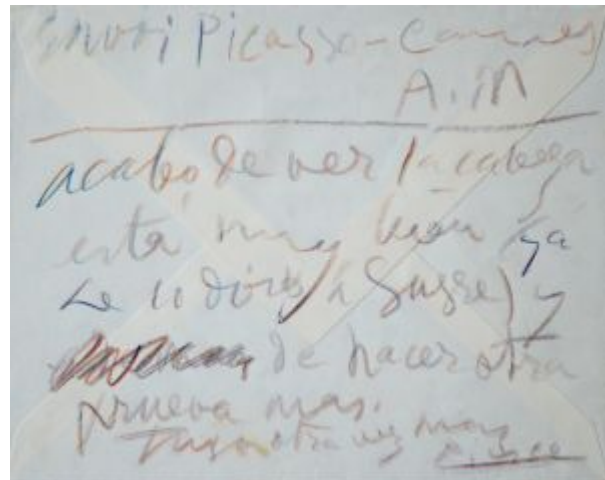 Envoi Picasso - Cannes
A. M
acabo de ver la cabeza
está muy bien (ya
se lo dirás a Susse) y
de hacer otra
prueva mas.
otra vez